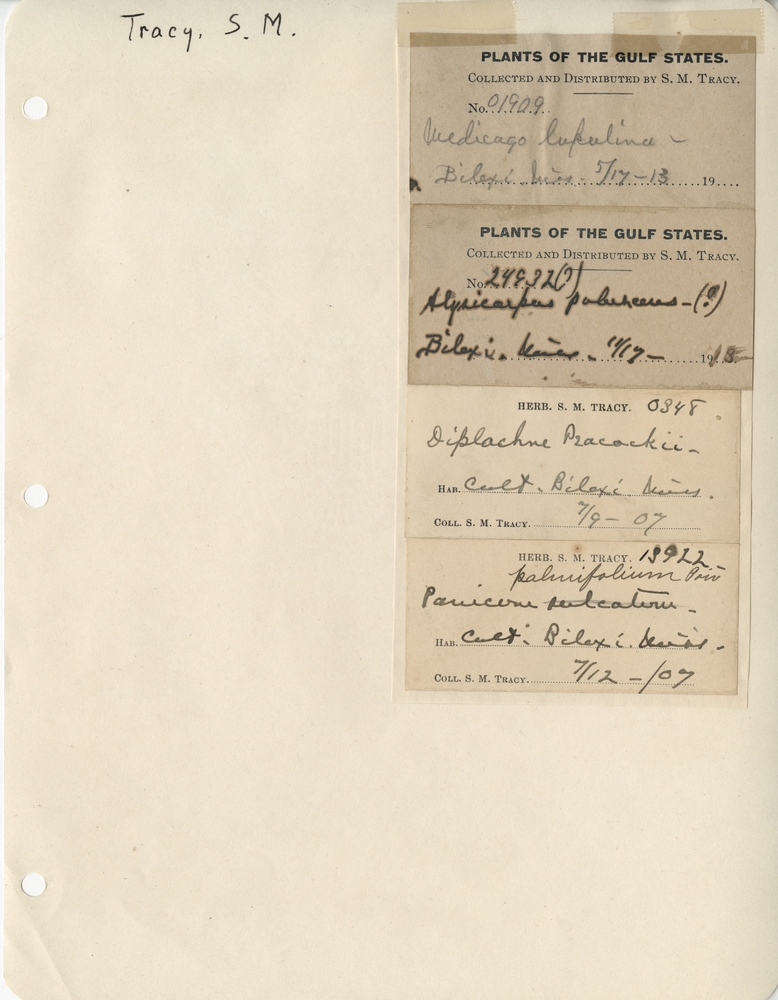 Tracy, S. M.
PLANTS OF THE GULF STATES.
COLLECTED AND DISTRIBUTED BY S. M. TRACY.
No. 01909
Medicago lupulina -
Biloxi. Miss. 5/17-13 19
PLANTS OF THE GULF STATES.
COLLECTED AND DISTRIBUTED BY S. M. TRACY.
No. (?)
Alysicarpus - (?)
Biloxi. Miss. 11/17- 1913
HERB. S. M. TRACY. 0348.
Diplachne Peacockii -
HAB. Cult. Biloxi. Miss.
COLL. S. M. TRACY. 7/9 - 07
HERB. S. M. TRACY. 13922
palmifolium Poir
Panicum sulcatum -
HAB. Cult. Biloxi. Miss.
COLL. S. M. TRACY. 7/12 - /07